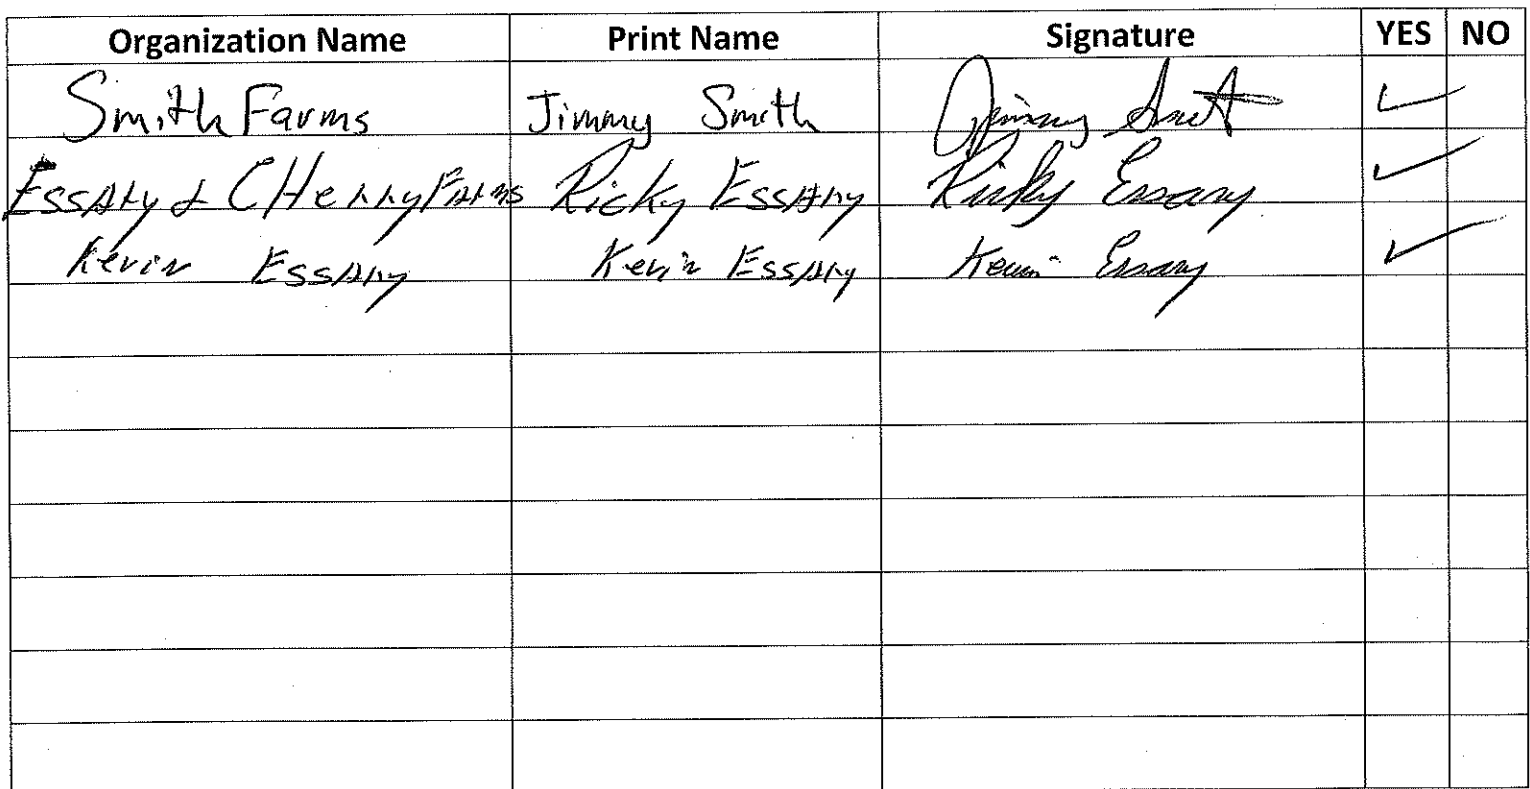 Organization Name Print Name Signature YES NO
Smith Farms Jimmy Smith Jimmy Smith ✓
Essary & CHerry Farms Ricky Essary Ricky Essary ✓
Kevin Essary Kevin Essary Kevin Essary ✓